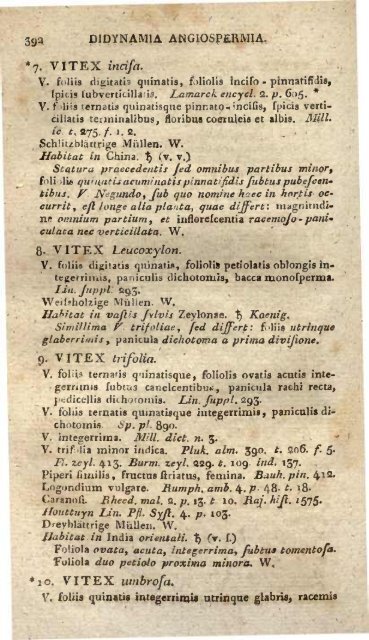 392 DIDYNAMIA ANGIOSPERMIA.
*7. VITEX inciſa.
V. foliis digitatis quinatis, foliolis inciſo - pinnatifidis,
ſpicis ſubverticillatis. Lamarck encycl. 2. p. 605. *
V. foliis ternatis quinatisque pinnato-inciſis, ſpicis verti-
cillatis terminalibus, floribus coeruleis et albis. Mill.
ic. t. 275. f. 1. 2.
Schlitzblättrige Müllen. W.
Habitat in China. ♄ (v. v.)
Statura praecedentis ſed omnibus partibus minor,
foliolis quinatis acuminatis pinnatifidis ſubtus pubeſcen-
tibus. V. Negundo, ſub quo nomine haec in hortis oc-
currit, eſt longe alia planta, quae differt: magnitudi-
ne omnium partium, et infloreſcentia racemoſo-pani-
culata nec verticillata. W.
8. VITEX Leucoxylon.
V. foliis digitatis quinatis, foliolis petiolatis oblongis in-
tegerrimis, paniculis dichotomis, bacca monoſperma.
Lin. ſuppl. 293.
Weiſsholzige Müllen. W.
Habitat in vaſtis ſylvis Zeylonae. ♄ Koenig.
Simillima V. trifoliae, ſed differt: foliis utrinque
glaberrimis, panicula dichotoma a prima diviſione.
9. VITEX trifolia.
V. foliis ternatis quinatisque, foliolis ovatis acutis inte-
gerrimis ſubtus caneſcentibus, panicula rachi recta,
pedicellis dichotomis. Lin. ſuppl. 293.
V. foliis ternatis quinatisque integerrimis, paniculis di-
chotomis. Sp. pl. 890.
V. integerrima. Mill. dict. n. 3.
V. trifolia minor indica. Pluk. alm. 390. t. 206. f. 5.
Fl. zeyl. 413. Burm. zeyl. 229. t. 109. ind. 137.
Piperi ſimilis, fructus ſtriatus, femina. Bauh. pin. 412.
Lagondium vulgare. Rumph. amb. 4. p. 48. t. 18.
Caranoſi. Rheed. mal. 2. p. 13. t. 10. Raj. hiſt. 1575.
Houttuyn Lin. Pfl. Syſt. 4. p. 103.
Dreyblättrige Müllen. W.
Habitat in India orientali. ♄ (v. ſ.)
Foliola ovata, acuta, integerrima, ſubtus tomentoſa.
Foliola duo petiolo proxima minora. W.
*10. VITEX umbroſa.
V. foliis quinatis integerrimis utrinque glabris, racemis